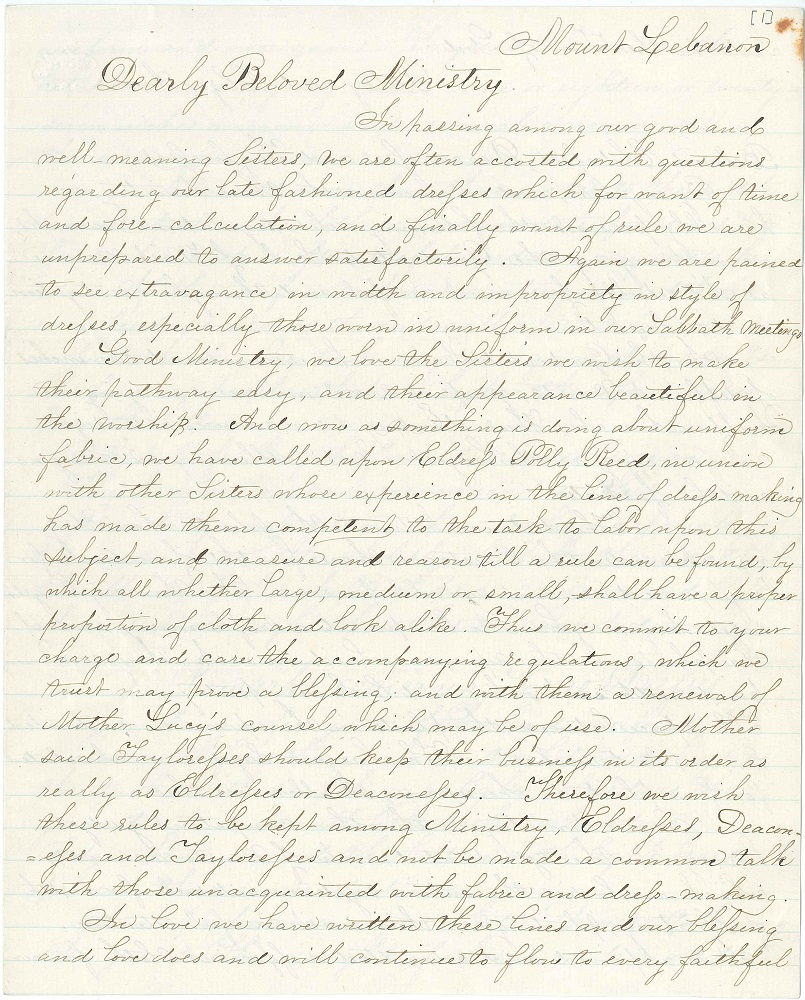 [1]
Mount Lebanon
Dearly Beloved Ministry.
In passing among our good and
well-meaning Sisters, we are often accosted with questions
regarding our late fashioned dresses which for want of time
and fore-calculation, and finally want of rule we are
unprepared to answer satisfactorily. Again we are pained
to see extravagance in width and impropriety in style of
dresses, especially those worn in uniform in our Sabbath Meetings
Good Ministry, we love the Sisters we wish to make
their pathway easy, and their appearance beautiful in
the worship. And now as something is doing about uniform
fabric, we have called upon Eldress Polly Reed, in union
with other Sisters whose experience in the line of dress-making
has made them competent to the task to labor upon this
subject, and measure and reason till a rule can be found, by
which all whether large, medium or small, shall have a proper
proportion of cloth and look alike. Thus we commit to your
charge and care the accompanying regulations, which we
trust may prove a blessing; and with them a renewal of
Mother Lucy's counsel which may be of use. Mother
said Tayloresses should keep their business in its order as
really as Eldresses or Deaconesses. Therefore we wish
these rules to be kept among Ministry, Eldresses, Deacon-
=esses and Tayloresses and not be made a common talk
with those unacquainted with fabric and dress-making.
In love we have written these lines and our blessing
and love does and will continue to flow to every faithful